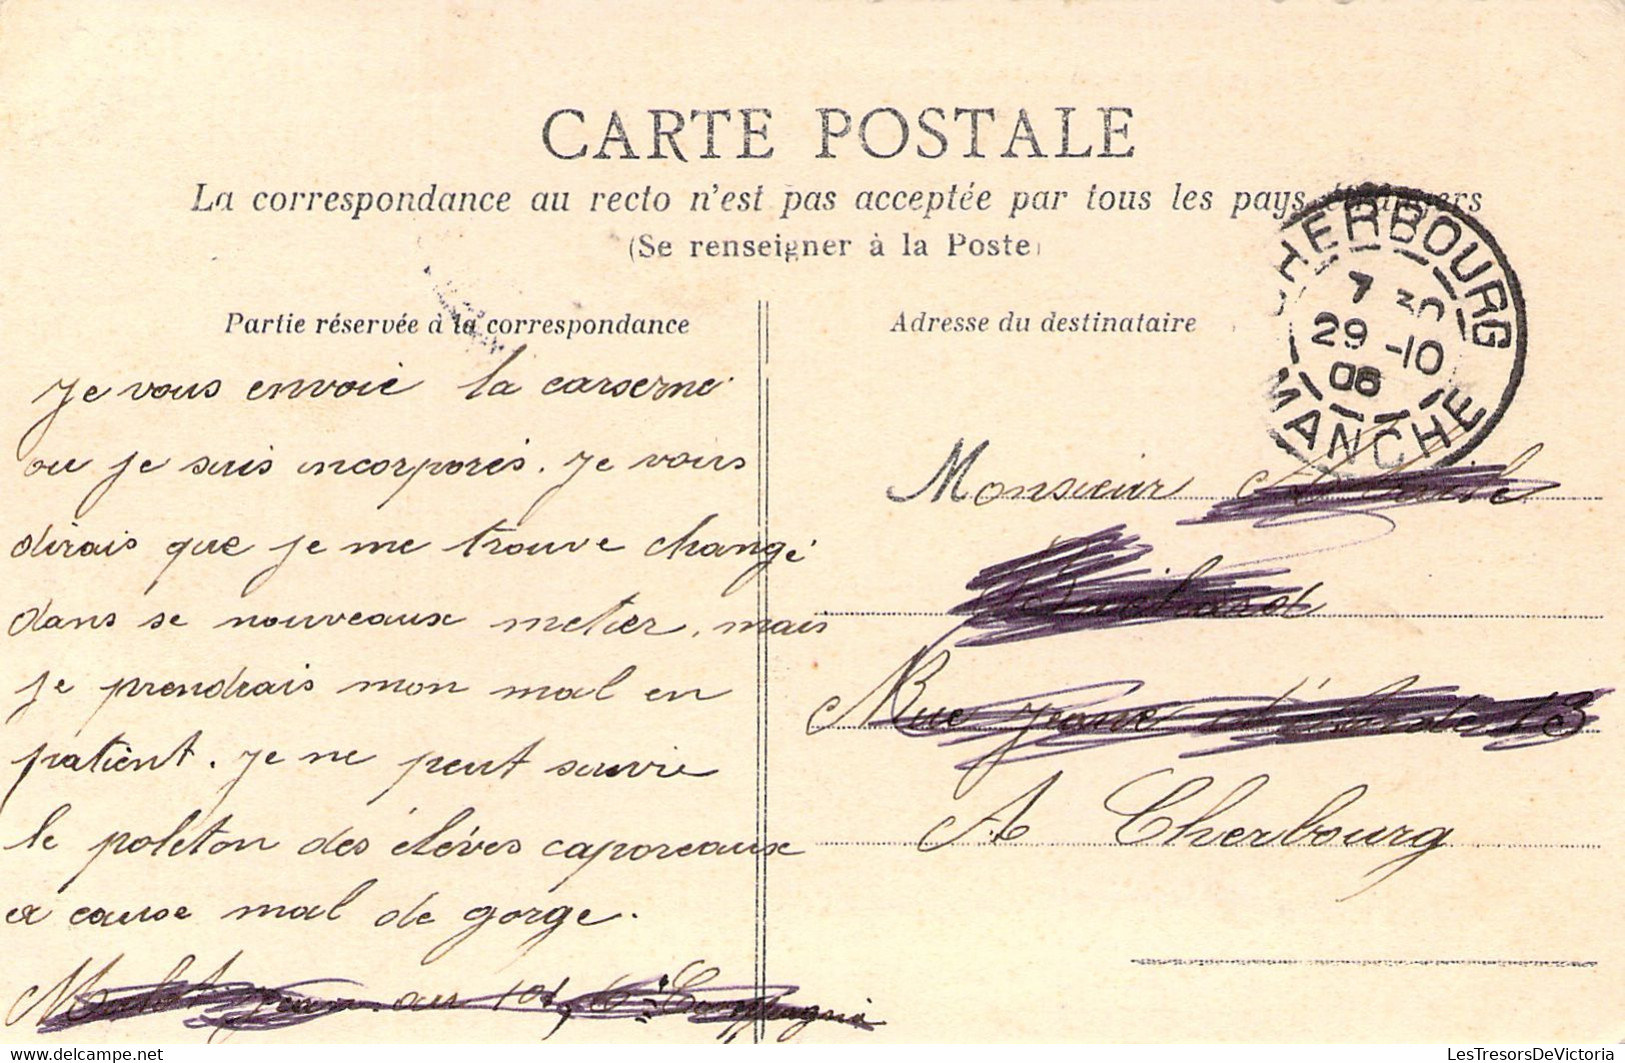 CARTE POSTALE
La correspondance au recto n'est pas acceptée par tous les pays étrangers
(Se renseigner à la Poste)
Partie réservée à la correspondance
Je vous envoie la carserne
ou je suis incorporés. Je vous
dirais que je me trouve changé
dans se nouveaux metier, mais
je prendrais mon mal en
patient. Je ne peut suivre
le poleton des éléves caporeaux
a cause mal de gorge.
Jean au 1er, 6e Compagnie
Adresse du destinataire
CHERBOURG
7 30
29 -10
06
MANCHE
Monsieur
Rue Jeanne 13
A Cherbourg
www.LesTresorsDeVictoria.com